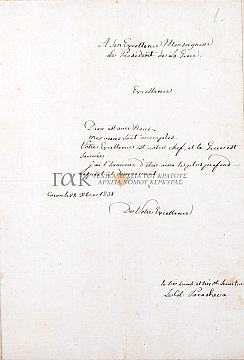 1.
A Son Excellence Monseigneur
le Président de la Grèce.
Excellence
Dieu est avec Nous
mes vœux sont accomplis
Votre Excellence est notre chef, et la Grèce est
sauvée
j'ai l'honneur d'être avec le plus profond
respect
ΓΑΚ
ΓΕΝΙΚΑ ΑΡΧΕΙΑ ΤΟΥ ΚΡΑΤΟΥΣ
ΑΡΧΕΙΑ ΝΟΜΟΥ ΚΕΡΚΥΡΑΣ
1831
De Votre Excellence
le très humble et très